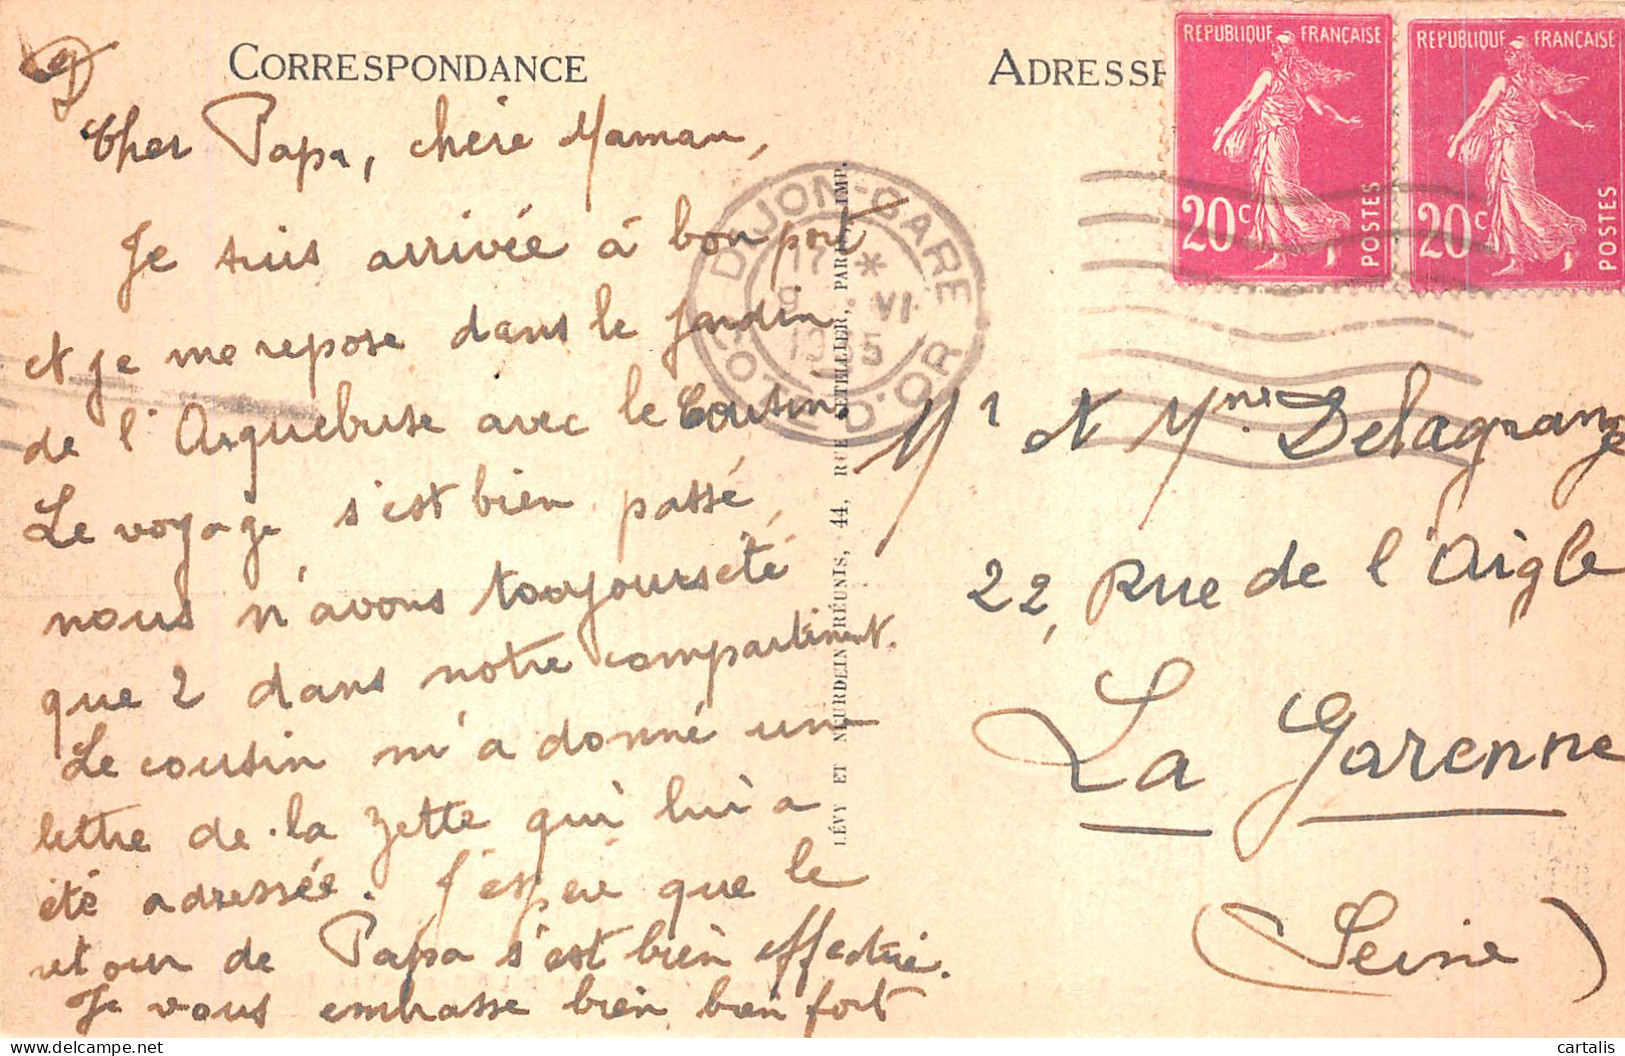 CORRESPONDANCE
Cher Papa, chère Maman,
Je suis arrivée à bon port
et je me repose dans le jardin
de l'Arquebuse avec le Cousin.
Le voyage s'est bien passé,
nous n'avons toujours été
que 2 dans notre compartiment.
Le cousin m'a donné un
lettre de la Zette qui lui a
été adressée. J'espère que le
retour de Papa s'est bien effectué.
Je vous embrasse bien bien fort
LÉVY ET NEURDEIN RÉUNIS, 44, RUE LETELLIER, PARIS, IMP.
DIJON-GARE
17 *
9 VI
1935
COTE-D'OR
ADRESSE
REPUBLIQUE FRANÇAISE
20c
POSTES
REPUBLIQUE FRANÇAISE
20c
POSTES
Mr et Mme Delagrange
22, Rue de l'Aigle
La Garenne
(Seine)
cartalis
delcampe.net